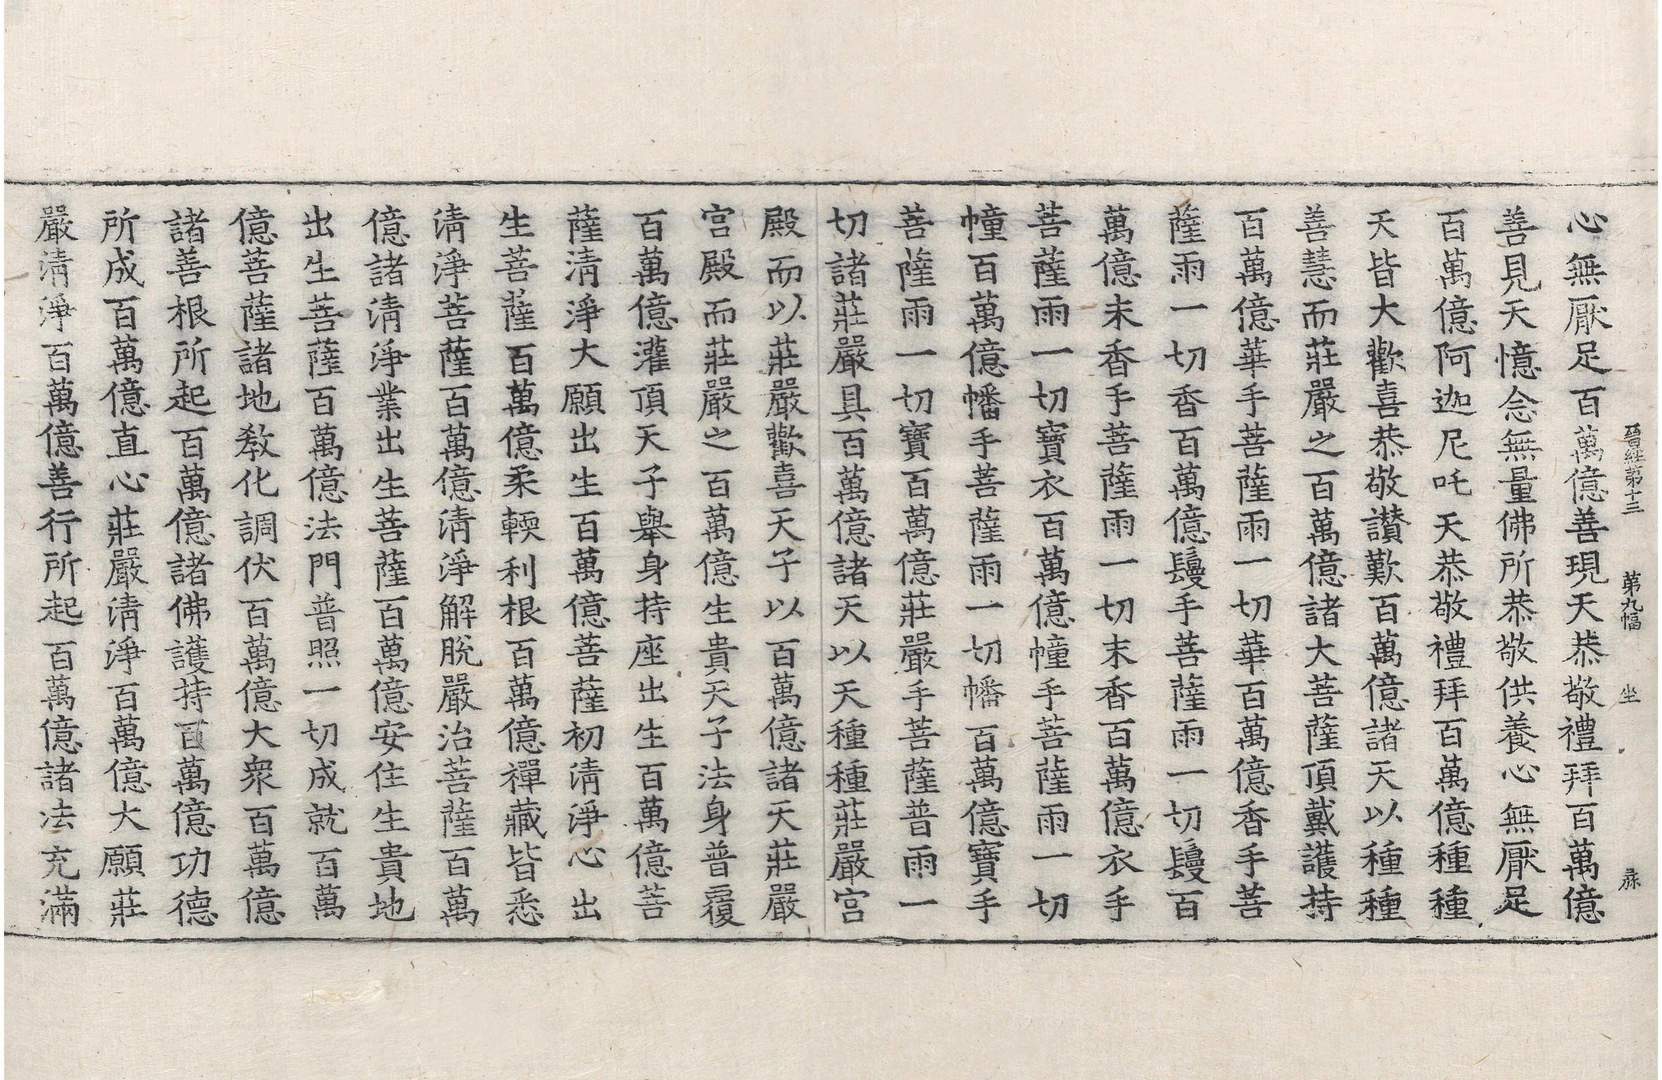 晉經第十三 第九幅 坐
心無厭足百萬億善現天恭敬禮拜百萬億
善見天憶念無量佛所恭敬供養心無厭足
百萬億阿迦尼吒天恭敬禮拜百萬億種種
天皆大歡喜恭敬讃歎百萬億諸天以種種
善慧而莊嚴之百萬億諸大菩薩頂戴護持
百萬億華手菩薩雨一切華百萬億香手菩
薩雨一切香百萬億鬘手菩薩雨一切鬘百
萬億末香手菩薩雨一切末香百萬億衣手
菩薩雨一切寶衣百萬億幢手菩薩雨一切
幢百萬億幡手菩薩雨一切幡百萬億寶手
菩薩雨一切寶百萬億莊嚴手菩薩普雨一
切諸莊嚴具百萬億諸天以天種種莊嚴宮
殿而以莊嚴歡喜天子以百萬億諸天莊嚴
宮殿而莊嚴之百萬億生貴天子法身普覆
百萬億灌頂天子舉身持座出生百萬億菩
薩清淨大願出生百萬億菩薩初清淨心出
生菩薩百萬億柔輭利根百萬億禪藏皆悉
清淨菩薩百萬億清淨解脫嚴治菩薩百萬
億諸清淨業出生菩薩百萬億安住生貴地
出生菩薩百萬億法門普照一切成就百萬
億菩薩諸地教化調伏百萬億大衆百萬億
諸善根所起百萬億諸佛護持百萬億功德
所成百萬億直心莊嚴清淨百萬億大願莊
嚴清淨百萬億善行所起百萬億諸法充滿